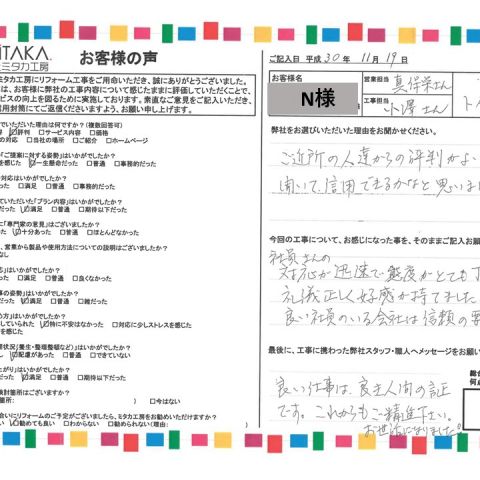 ITAKA®
ミタカ工房
お客様の声
ミタカ工房にリフォーム工事をご用命いただき、誠にありがとうございました。
は、お客様に弊社の工事内容について感じたままに評価していただくことで、
ビスの向上を図るために実施しております。率直なご意見をご記入いただき、
信用封筒にてご返信くださいますよう、お願い申し上げます。
でいただいた理由は何ですか?(複数回答可)
評判 □サービス内容 □価格
の対応 □当社の場所 □ご紹介 □ホームページ
「ご提案に対する姿勢」はいかがでしたか?
じた □一生懸命だった □普通 □事務的だった
対応はいかがでしたか?
った □満足 □普通 □事務的だった
ていただいた「プラン内容」はいかがでしたか?
った □満足 □普通 □期待以下だった
に「専門家の意見」はございましたか?
った □十分あった □普通 □ほとんどなかった
、営業から製品や使用方法についての説明はございましたか?
なし
応」はいかがでしたか?
った □満足 □普通 □良くなかった
事の姿勢」はいかがでしたか?
だった □満足 □普通 □雑だった
め方」はいかがでしたか?
していられた □特に不安はなかった □対応に少しストレスを感じた
を感じた
理状況(養生・整理整頓など)」はいかがでしたか?
し □配慮があった □できていない
上がり」はいかがでしたか?
った □満足 □普通 □期待以下だった
検討箇所はございますか?
箇所: ) □今はない
合いにリフォームのご予定がございましたら、ミタカ工房をお勧めいただけますか?
い □勧めても良い □わからない □勧められない(理由: )
ご記入日 平成30年 11月 19日
お客様名
N様
営業担当 真保栄さん
工事担当 小澤さん
弊社をお選びいただいた理由をお聞かせください。
ご近所の人達からの評判がよい
聞いて、信用できるかなと思いま
今回の工事について、お感じになった事を、そのままご記入お願
社員さんの
対応が迅速で態度がとても丁
礼儀正しく好感が持てました
良い社員のいる会社は信頼の要
最後に、工事に携わった弊社スタッフ・職人へメッセージをお願い
良い仕事は、良き人間の証
です。これからもご精進下さい。
お世話になりました。
総合
何点